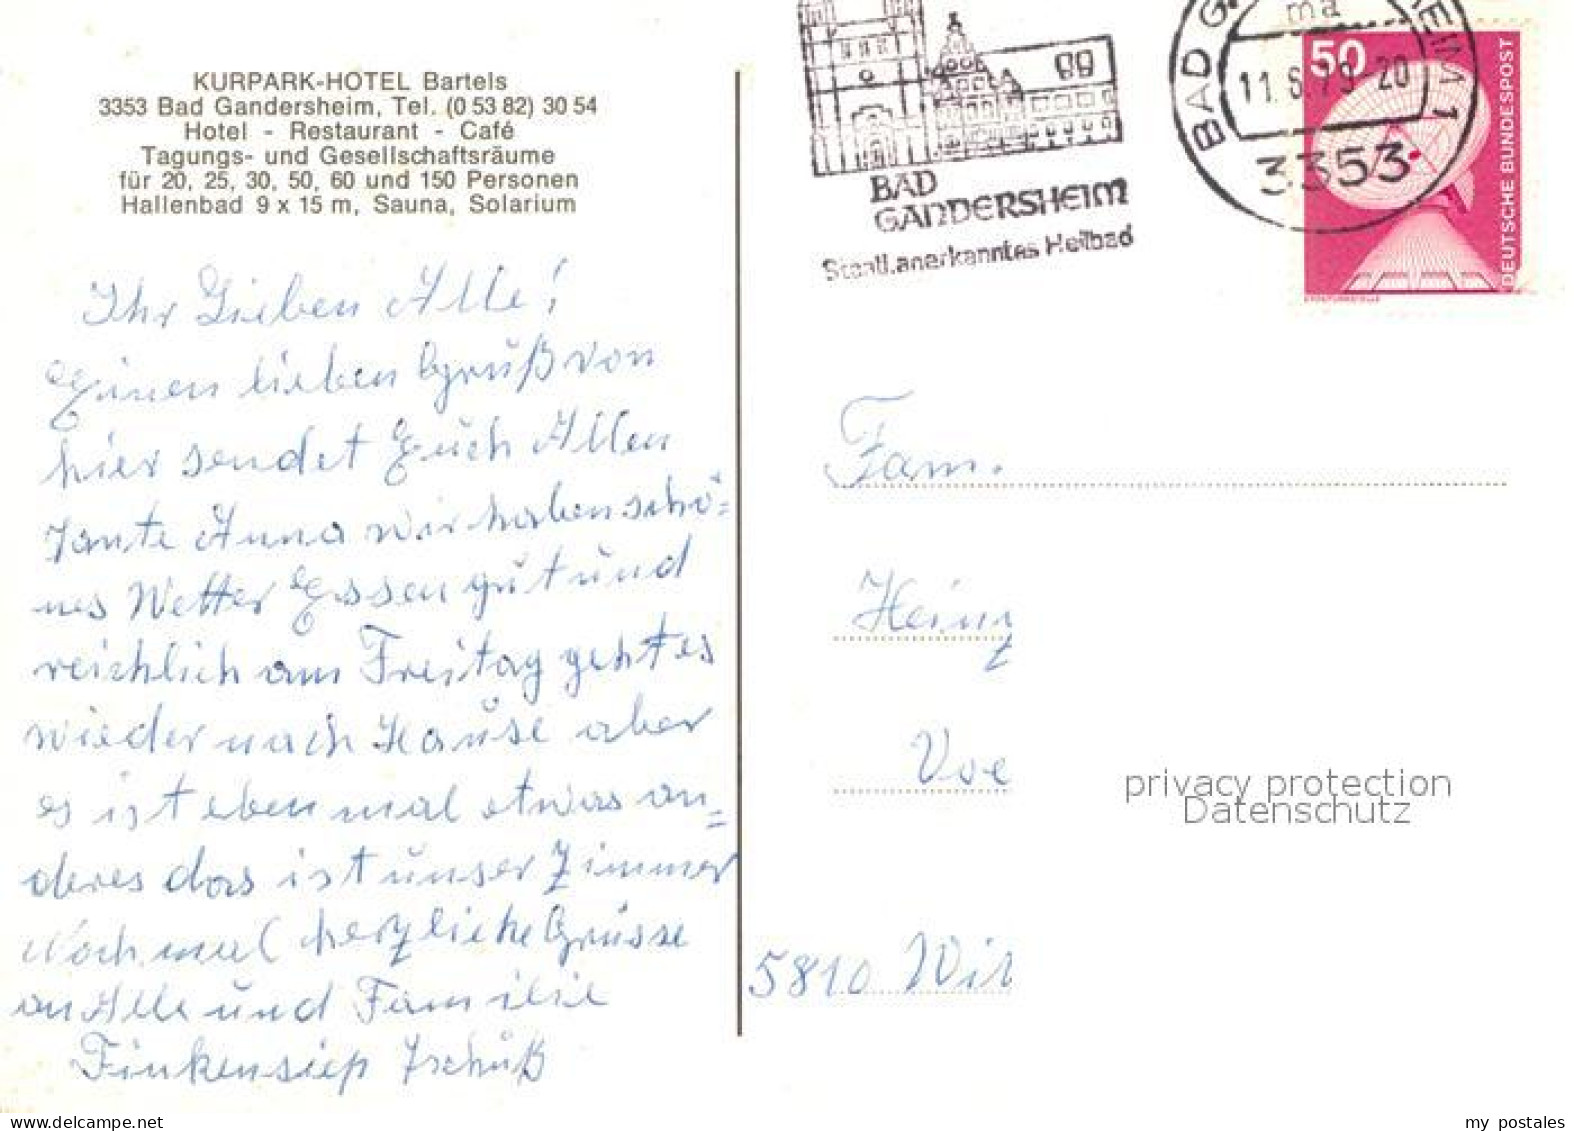 KURPARK-HOTEL Bartels
3353 Bad Gandersheim, Tel. (0 53 82) 30 54
Hotel - Restaurant - Café
Tagungs- und Gesellschaftsräume
für 20, 25, 30, 50, 60 und 150 Personen
Hallenbad 9 x 15 m, Sauna, Solarium
Ihr Lieben Alle!
Einen lieben Gruß von
hier sendet Euch Allen
Tante Anna wir haben schö=
nes Wetter Essen gut und
reichlich am Freitag geht es
wieder nach Hause aber
es ist eben mal etwas an=
deres das ist unser Zimmer
Noch mal herzliche Grüsse
an Alle und Familie
Finkensiep Tschüß
BAD
GANDERSHEIM
Staatl. anerkanntes Heilbad
ma
11. 8. 79 - 20
3353
50
DEUTSCHE BUNDESPOST
Fam.
Heinz
Voe
5810 Wit
privacy protection
Datenschutz
my postales